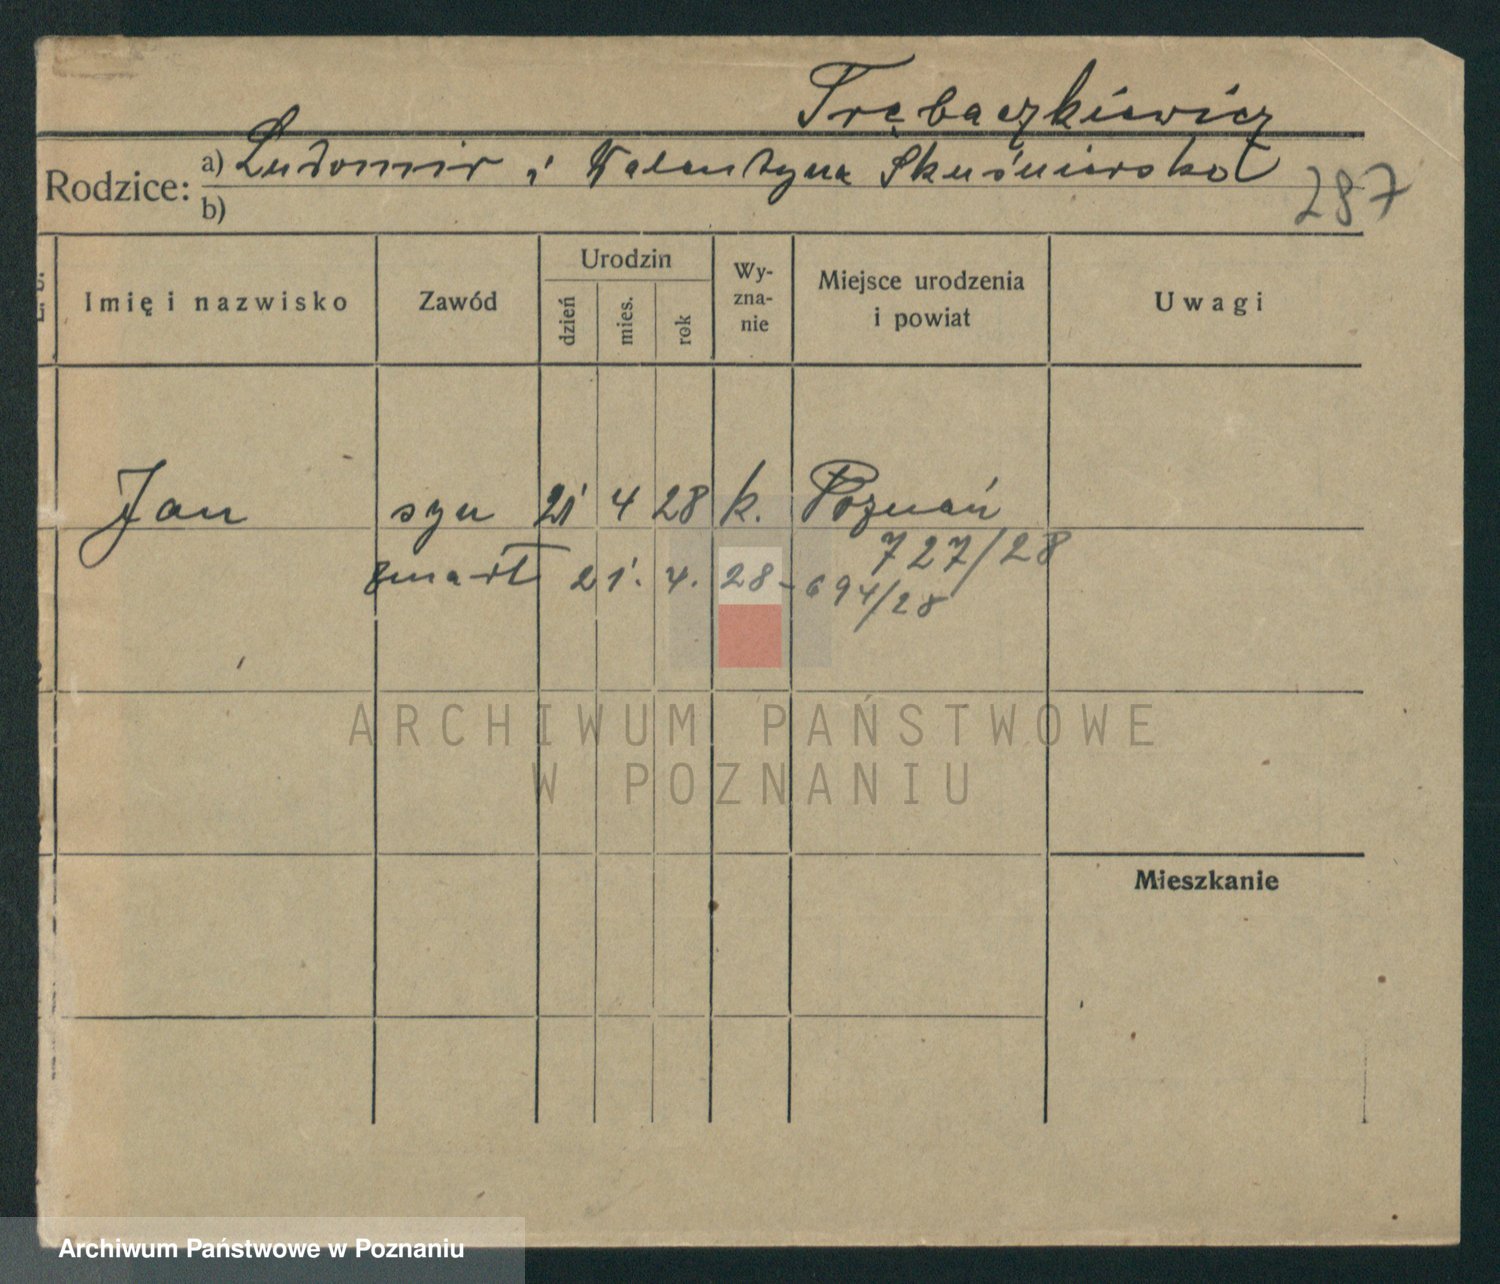 Trębaczkiewicz
Rodzice: a) Ludomir i Walentyna Skuśniarska
b)
287
Imię i nazwisko
Zawód
Urodzin
dzień
mies.
rok
Wy-
zna-
nie
Miejsce urodzenia
i powiat
Uwagi
Jan syn 21 4 28 k. Poznań
727/28
zmarł 21. 4. 28 - 694/28
ARCHIWUM PAŃSTWOWE
W POZNANIU
Mieszkanie
Archiwum Państwowe w Poznaniu